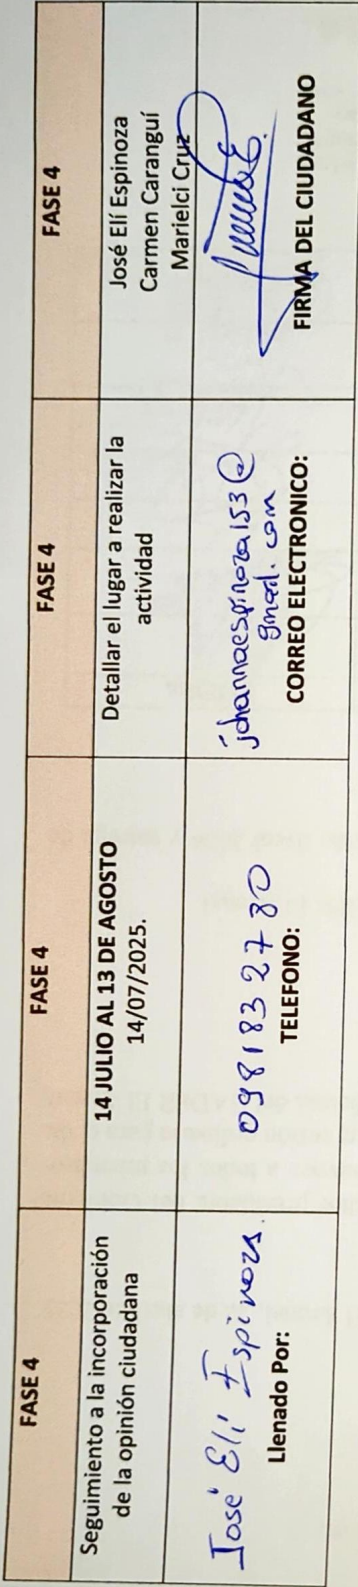 FASE 4
FASE 4
FASE 4
FASE 4
Seguimiento a la incorporación
de la opinión ciudadana
14 JULIO AL 13 DE AGOSTO
14/07/2025.
Detallar el lugar a realizar la
actividad
José Elí Espinoza
Carmen Caranguí
Marielci Cruz
José Elí Espinoza.
Llenado Por:
0981832780
TELEFONO:
johannaespinoza153@
gmail.com
CORREO ELECTRONICO:
FIRMA DEL CIUDADANO